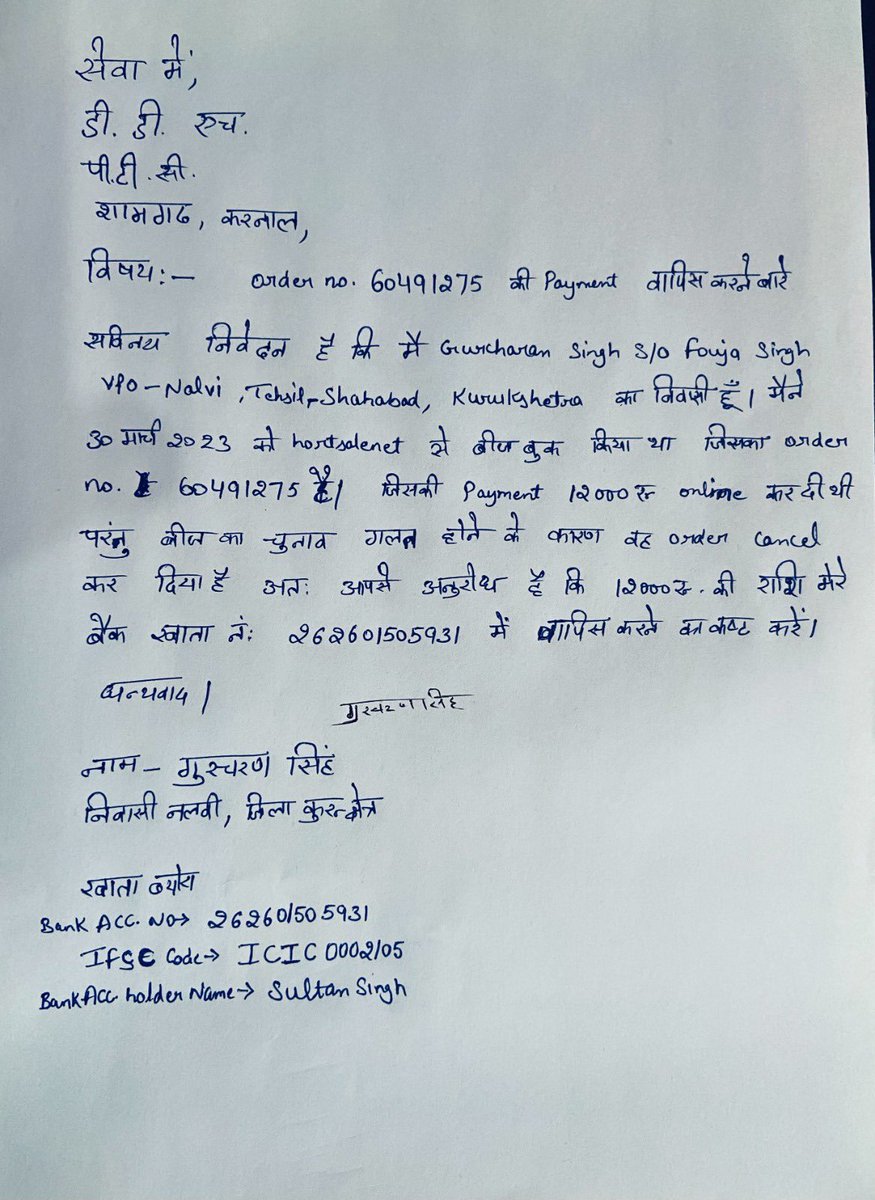 सेवा में,
डी. डी. एच.
पी.टी.सी.
शामगढ, करनाल,
विषय:- order no. 60491275 की Payment वापिस करने बारे
सविनय निवेदन है कि मैं Gurcharan Singh S/o Fouja Singh
VPO-Nalvi, Tehsil-Shahabad, Kurukshetra का निवासी हूँ। मैने
30 मार्च 2023 को hortsalenet से बीज बुक किया था जिसका order
no. 60491275 है। जिसकी Payment 12000रु online कर दी थी
परंतु बीज का चुनाव गलत होने के कारण वह order cancel
कर दिया है अत: आपसे अनुरोध है कि 12000रु. की राशि मेरे
बैंक खाता नं: 262601505931 में वापिस करने का कष्ट करें।
धन्यवाद।
गुरचरण सिंह
नाम - गुरुचरण सिंह
निवासी नलवी, जिला कुरुक्षेत्र
खाता ब्योरा
Bank Acc. No→ 262601505931
IFSC Code→ ICIC0002105
Bank Acc holder Name→ Sultan Singh